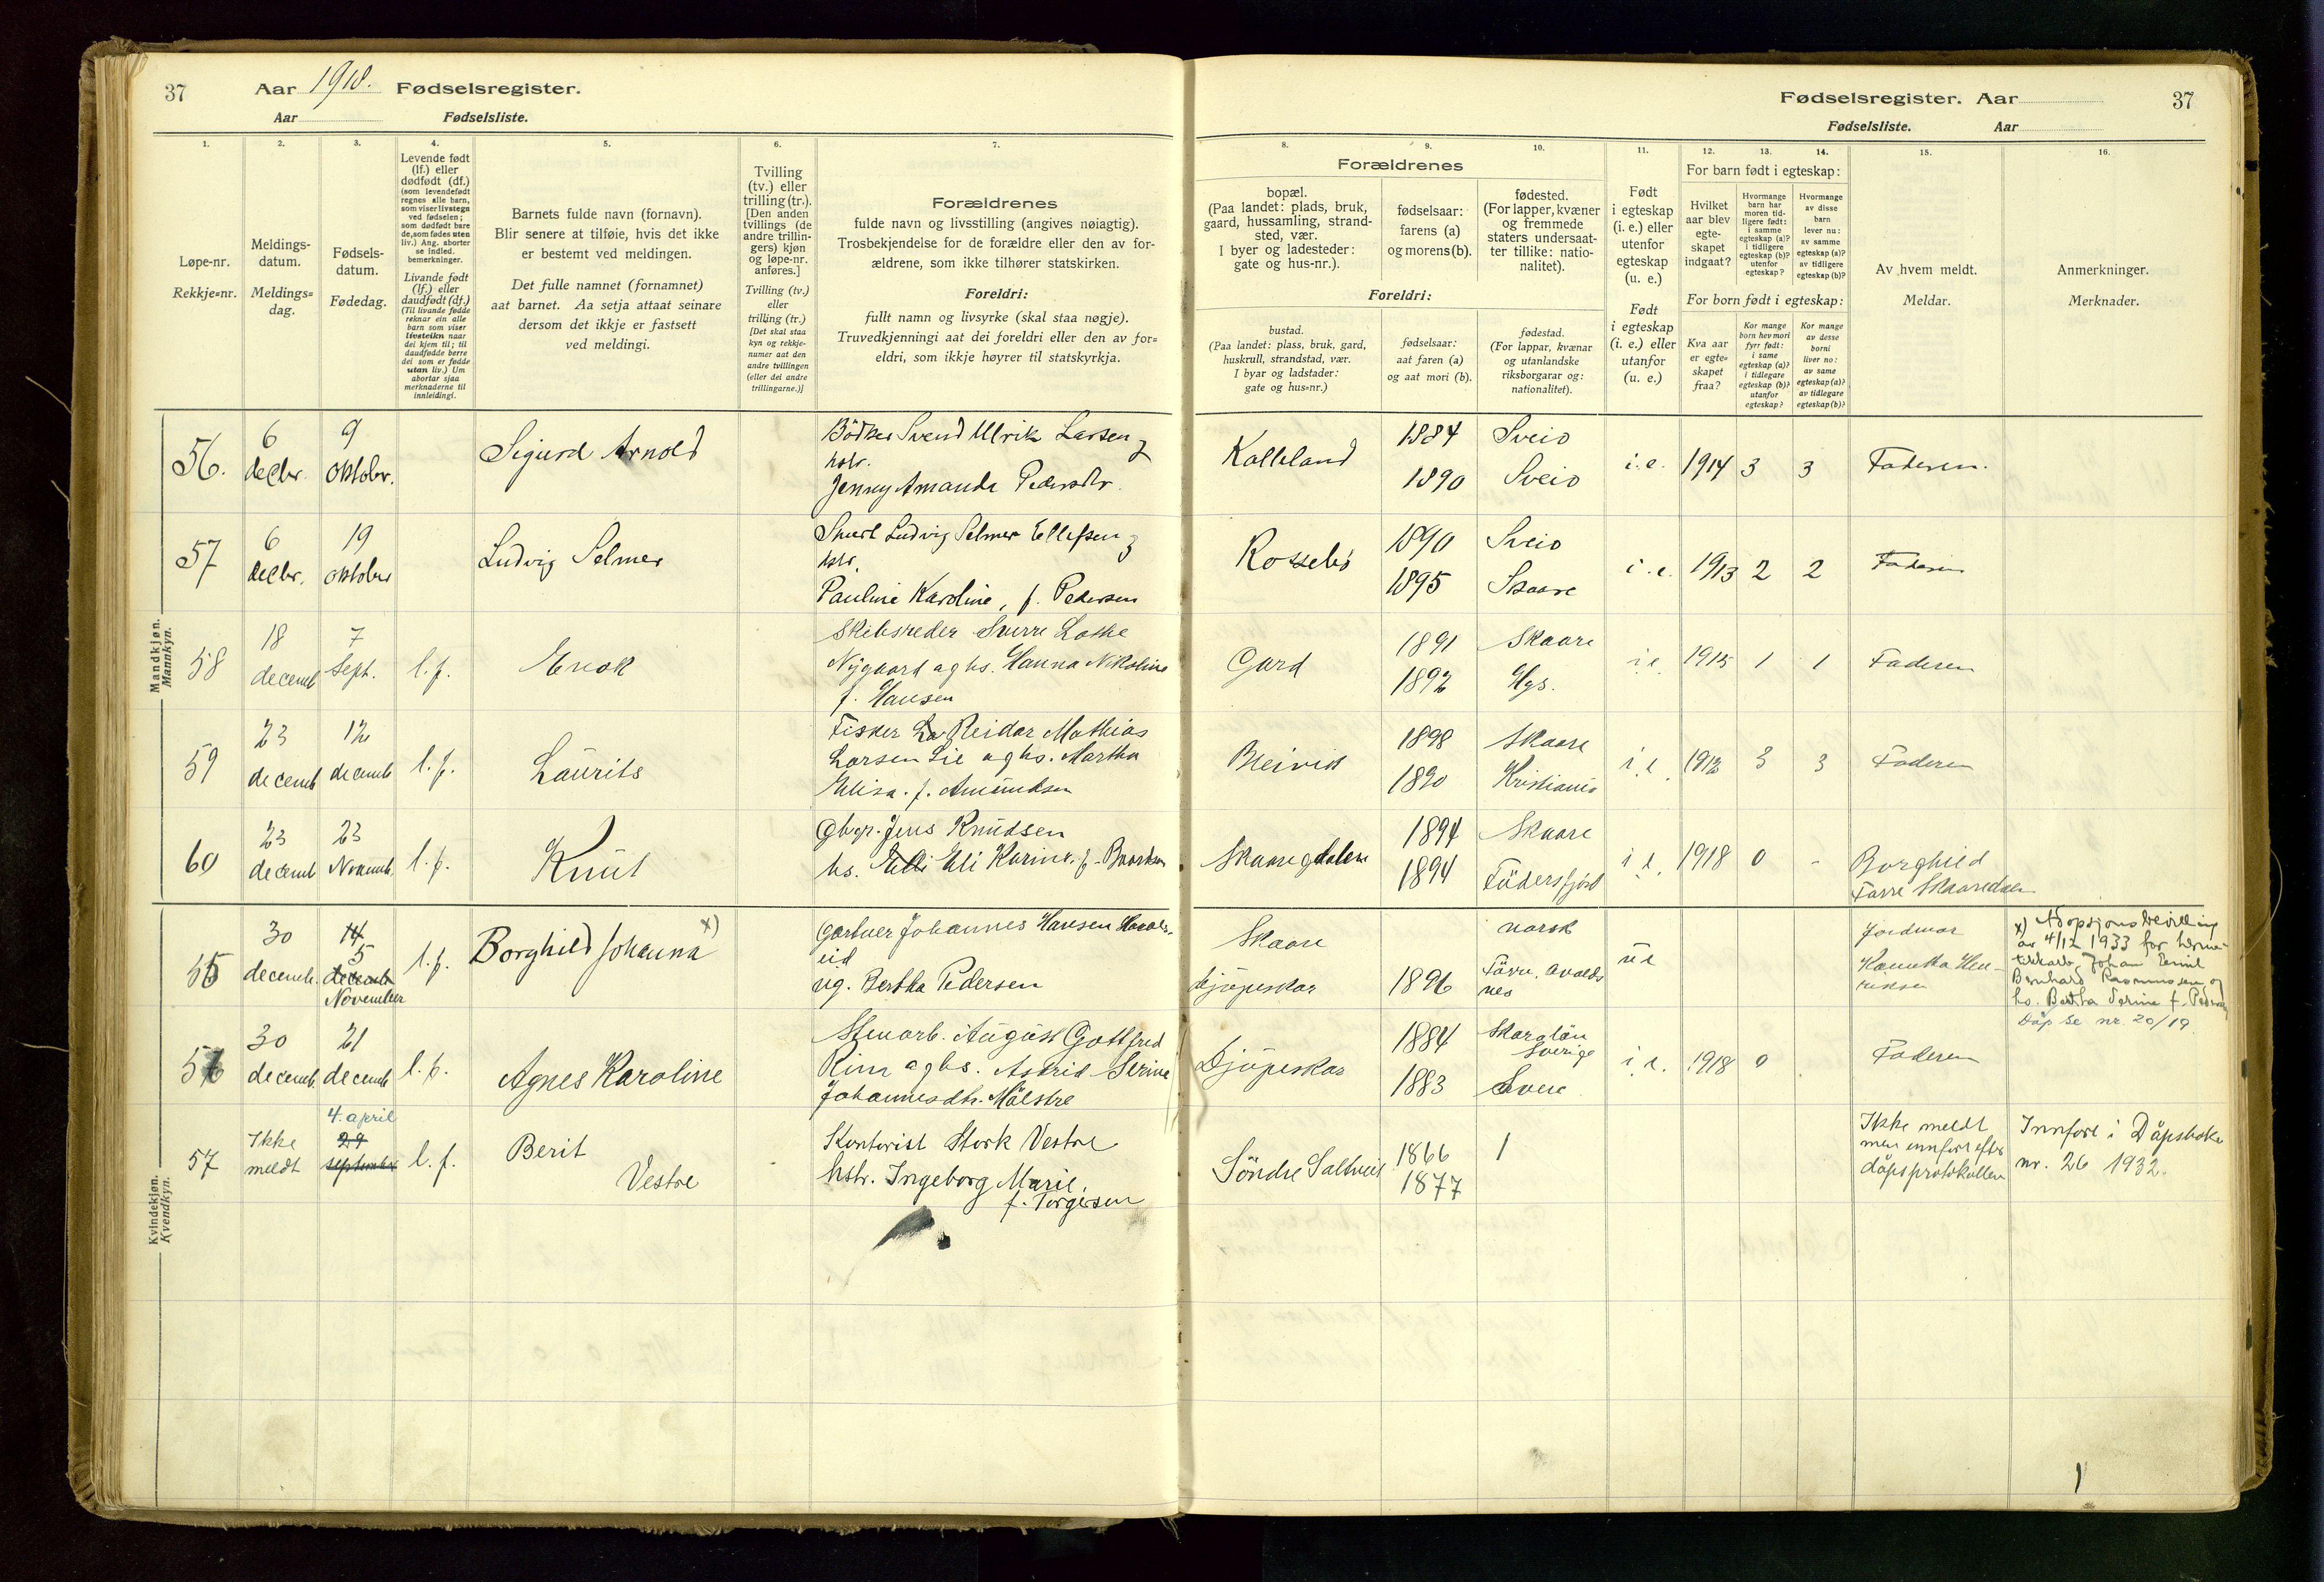 37 Aar 1918. Fødselsregister.
Aar Fødselsliste.
1.
Løpe-nr.
Rekkje=nr.
2.
Meldings-
datum.
Meldings=
dag.
3.
Fødsels-
datum.
Fødedag.
4.
Levende født
(lf.) eller
dødfødt (df.)
(som levendefødt
regnes alle barn,
som viser livstegn
ved fødselen;
som dødfødt bare
de, som fødes uten
liv.) Ang. aborter
se indled.
bemerkninger.
Livande født
(lf.) eller
daudfødt (df.)
(Til livande fødde
reknar ein alle
barn som viser
livsteikn naar
dei kjem til; til
daudfødde berre
dei som er fødde
utan liv.) Um
abortar sjaa
merknaderne til
innleidingi.
5.
Barnets fulde navn (fornavn).
Blir senere at tilføie, hvis det ikke
er bestemt ved meldingen.
Det fulle namnet (fornamnet)
aat barnet. Aa setja attaat seinare
dersom det ikkje er fastsett
ved meldingi.
6.
Tvilling
(tv.) eller
trilling (tr.).
[Den anden
tvillings (de
andre trillin-
gers) kjøn
og løpe-nr.
anføres.]
Tvilling (tv.)
eller
trilling (tr.)
[Det skal staa
kyn og rekkje-
numer aat den
andre tvillingen
(eller dei andre
trillingarne.)]
7.
Forældrenes
fulde navn og livsstilling (angives nøiagtig).
Trosbekjendelse for de forældre eller den av for-
ældrene, som ikke tilhører statskirken.
Foreldri:
fullt namn og livsyrke (skal staa nøgje).
Truvedkjenningi aat dei foreldri eller den av for=
eldri, som ikkje høyrer til statskyrkja.
Fødselsregister. Aar 37
Fødselsliste. Aar
Forældrenes
8.
bopæl.
(Paa landet: plads, bruk,
gaard, hussamling, strand-
sted, vær.
I byer og ladesteder:
gate og hus-nr.).
9.
fødselsaar:
farens (a)
og morens (b).
10.
fødested.
(For lapper, kvæner
og fremmede
staters undersaat-
ter tillike: natio-
nalitet).
Foreldri:
bustad.
(Paa landet: plass, bruk, gard,
huskrull, strandstad, vær.
I byar og ladstader:
gate og hus=nr.)
fødselsaar:
aat faren (a)
og aat mori (b).
fødestad.
(For lappar, kvænar
og utanlandske
riksborgarar og:
nationalitet).
11.
Født
i egteskap
(i. e.) eller
utenfor
egteskap
(u. e.)
Født
i egteskap
(i. e.) eller
utanfor
(u. e.)
12. 13. 14.
For barn født i egteskap:
Hvilket
aar blev
egte-
skapet
indgaat?
Hvormange
barn har
moren tid-
ligere født:
i samme
egteskap (a)?
i tidligere
egteskap (b)?
utenfor
egteskap?
Hvormange
av disse
barn
lever nu:
av samme
egteskap (a)?
av tidligere
egteskap (b)?
For born født i egteskap:
Kva aar
er egte=
skapet
fraa?
Kor mange
born hev mori
fyrr født:
i same
egteskap (a)?
i tidlegare
egteskap (b)?
utanfor
egteskap?
Kor mange
av desse
borni
liver no:
av same
egteskap (a)?
av tidlegare
egteskap (b)?
15.
Av hvem meldt.
Meldar.
16.
Anmerkninger.
Merknader.
Mandkjøn.
Mannkyn.
56. 6 decbr. 9 oktobr. Sigurd Arnold
Bödker Svend Ulrik Larsen &
hstr.
Jenny Amanda Pedersdtr.
Kalleland 1884 Sveio
1890 Sveio
i. e. 1914 3 3 Faderen.
57 6 decbr. 19 oktober Ludvig Selmer
Ludvig Selmer Ellefsen &
hstr.
Pauline Karoline, f. Pedersen
Rossebö 1890 Sveio
1895 Skaare
i. e. 1913 2 2 Faderen
58 18 decemb 7 Sept. l. f. Enok
Skibsreder Sverre Lothe
Nygaard og hs. Hanna Nikoline
f. Hansen
Gard 1891 Skaare
1892 Hgs.
i e 1915 1 1 Faderen
59 23 decemb 12 decemb l. f. Laurits
Fisker La Reidar Mathias
Larsen Lie og hs. Martha
Elisa. f. Amundsen
Bleivik 1898 Skaare
1890 Kristiania
i. e. 1912 3 3 Faderen
60 23 decemb 23 Novemb. l. f. Knut
Gbgr. Jens Knudsen
hs. Elli Eli Karine. f.
Skaaregdalen 1894 Skaare
1894
i e. 1918 0 - Borghild
Skaaredalen
Kvindekjøn.
Kvendkyn.
55 30 decemb. 14 5 decemb November l. f. Borghild Johanna x)
Gartner Johannes Hansen
eid
ug. Bertha Pedersen
Skaare norsk
Djupeskar 1896 avalds
nes
u e
Jordmor
x) Adopsjonsbevilling
av 4/12 1933 for herme-
tikkarb. Johan Emil
Bernhard Rasmussen og
hs. Bertha Serine f. Pedersen
Dåp se nr. 20/19.
56 30 decemb. 21 decemb l. f. Agnes Karoline
Stenarb. August Gottfred
og hs. Astrid Serine
Johannesdtr. Mölstre
Djupeskar 1884
Sverige
1883
i. e. 1918 0 Faderen
57 Ikke
meldt
4. april
29
september
l. f. Berit
Vestre
Kontorist Stork Vestre
hstr. Ingeborg Marie,
f. Torgersen
Söndre Saltveit 1866
1877
Ikke meldt
men innført efter
dåpsprotokollen
Innført i Dåpsboka
nr. 26 1932.